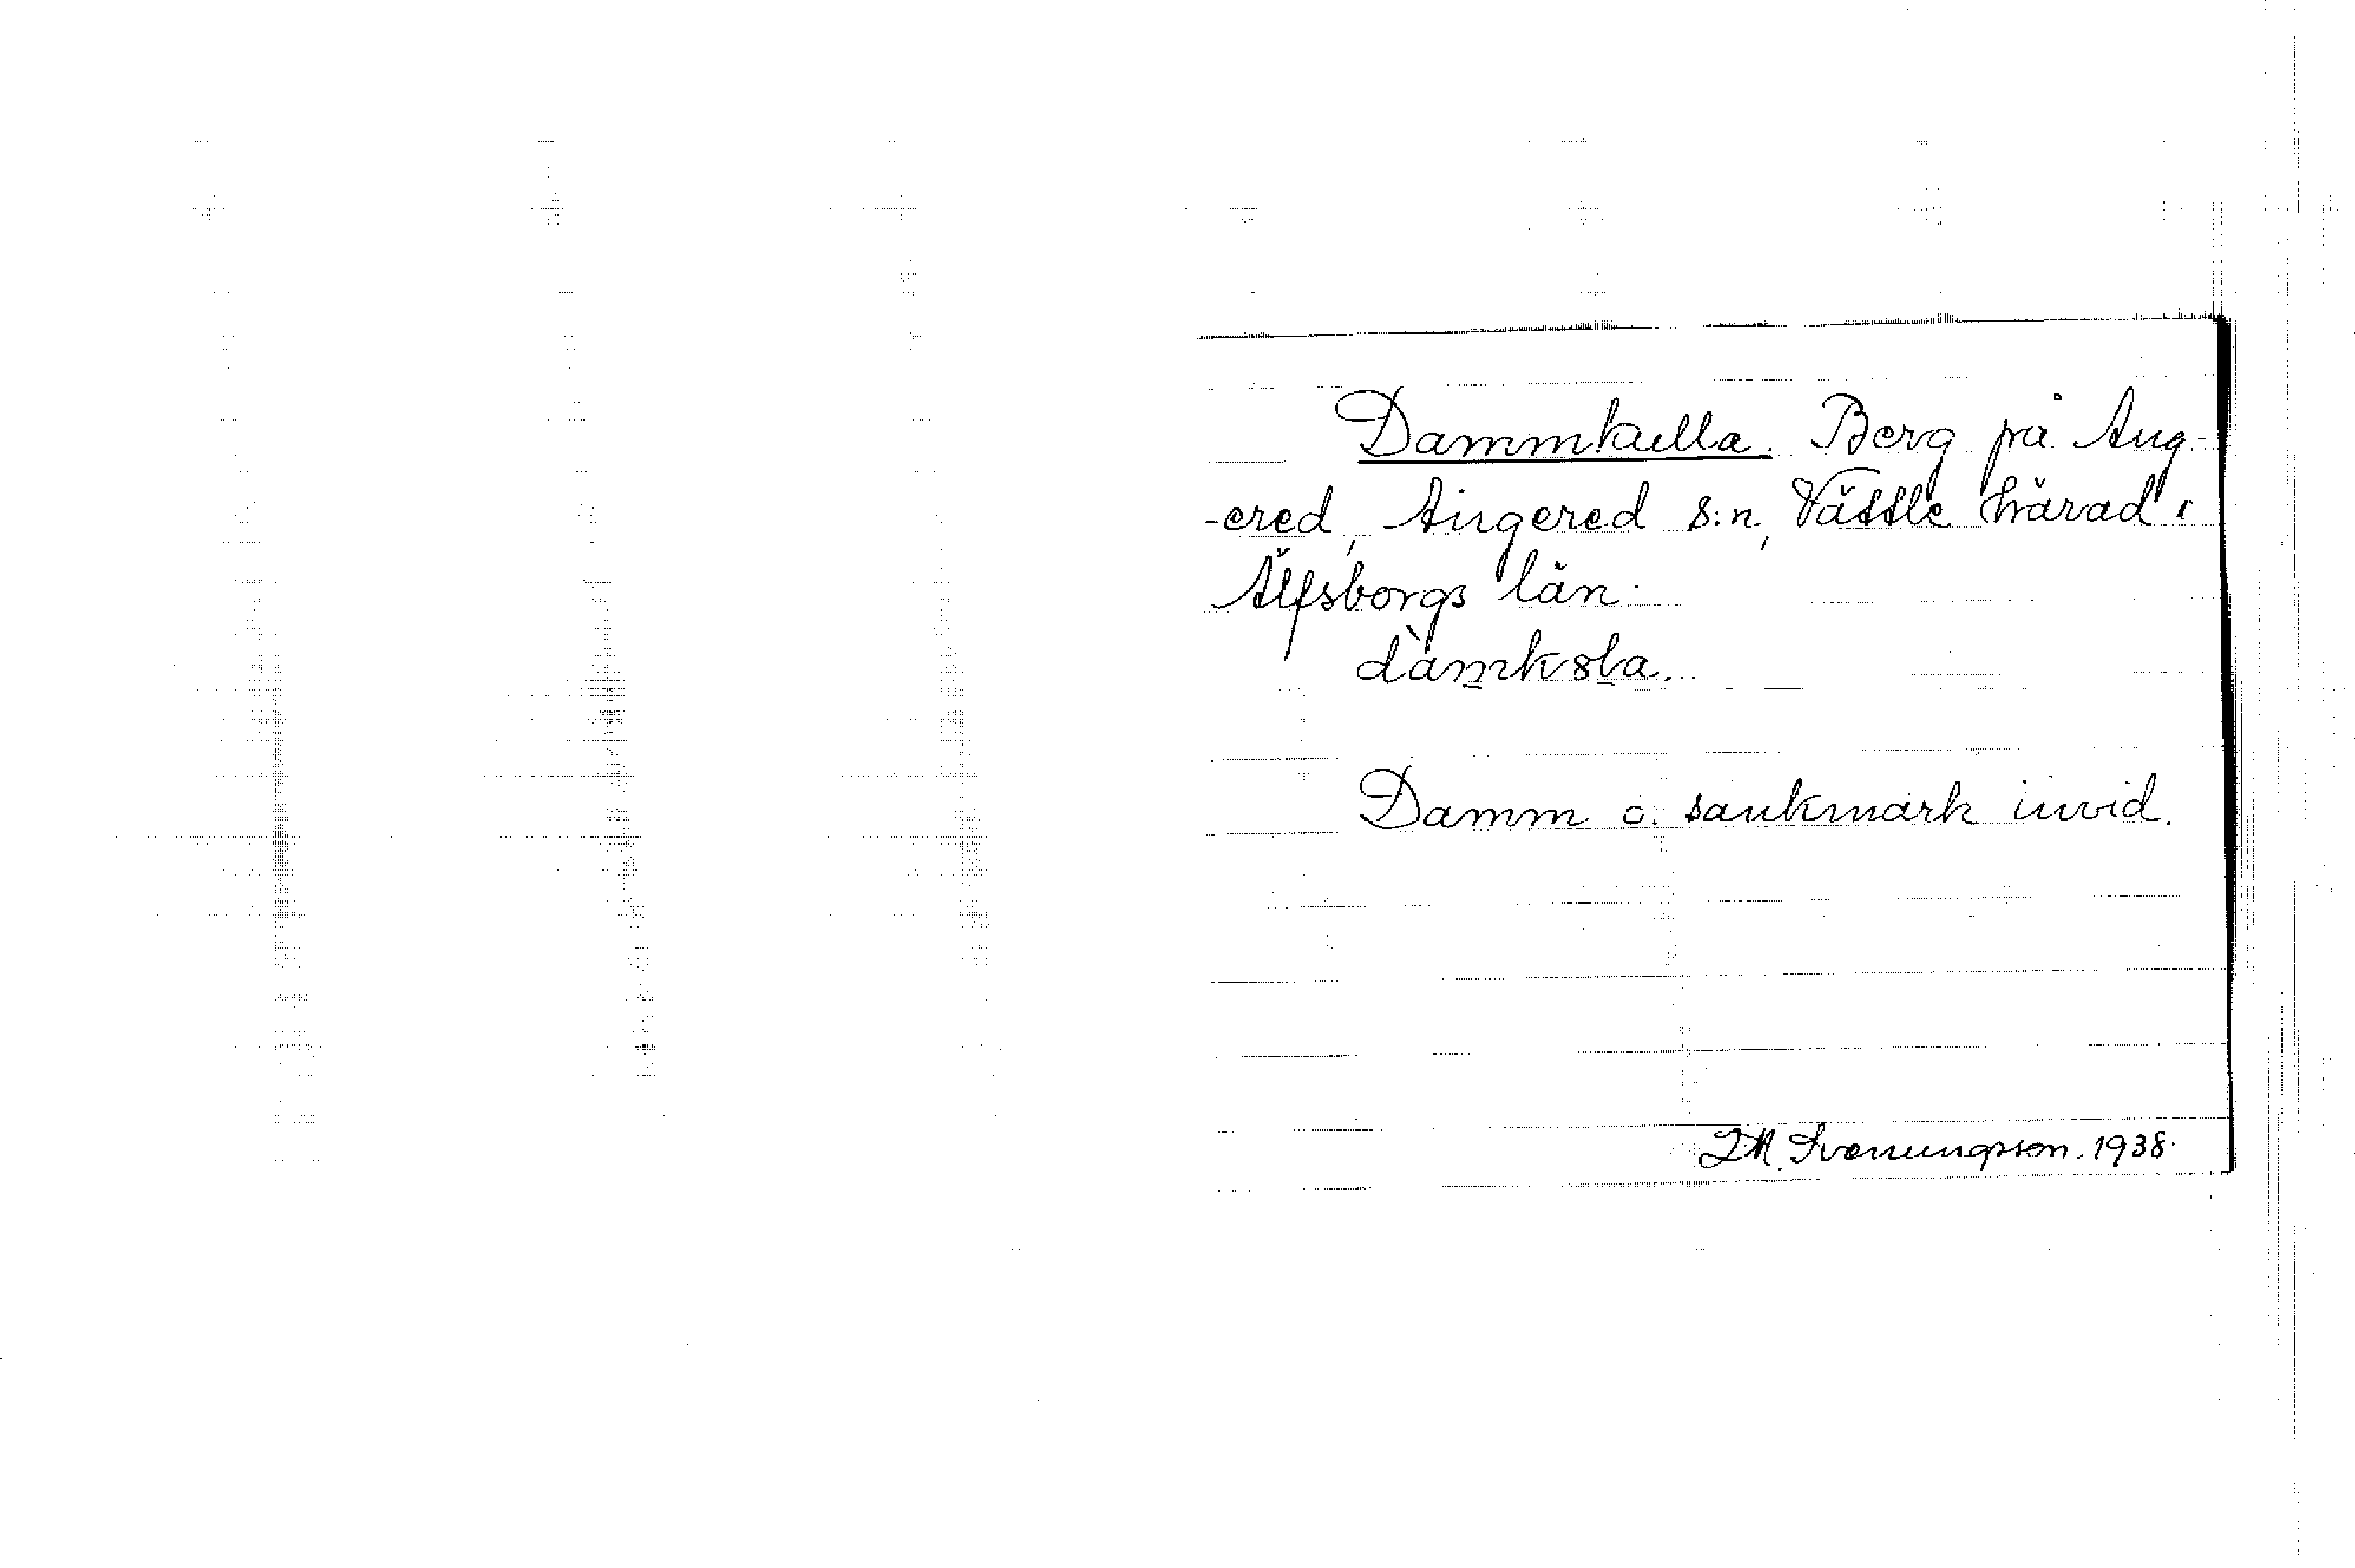 Dammkulla. Berg på Ang-
-ered, Angered s:n, Vättle härad i
Älfsborgs län.
dàmksla.
Damm o. sankmark invid.
J.M. Svenungsson. 1938.